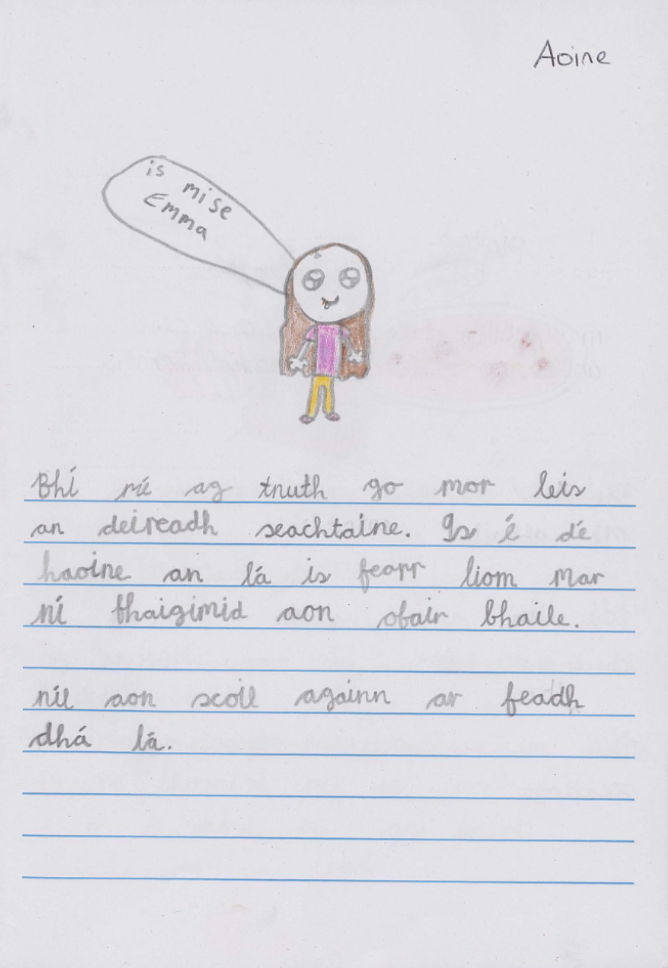 Aoine
is mise
Emma
Bhí sé ag tnuth go mor leis
an deireadh seachtaine. Is é dé
haoine an lá is fearr liom mar
ní fhaigimid aon obair bhaile.
níl aon scoil againn ar feadh
dhá lá.